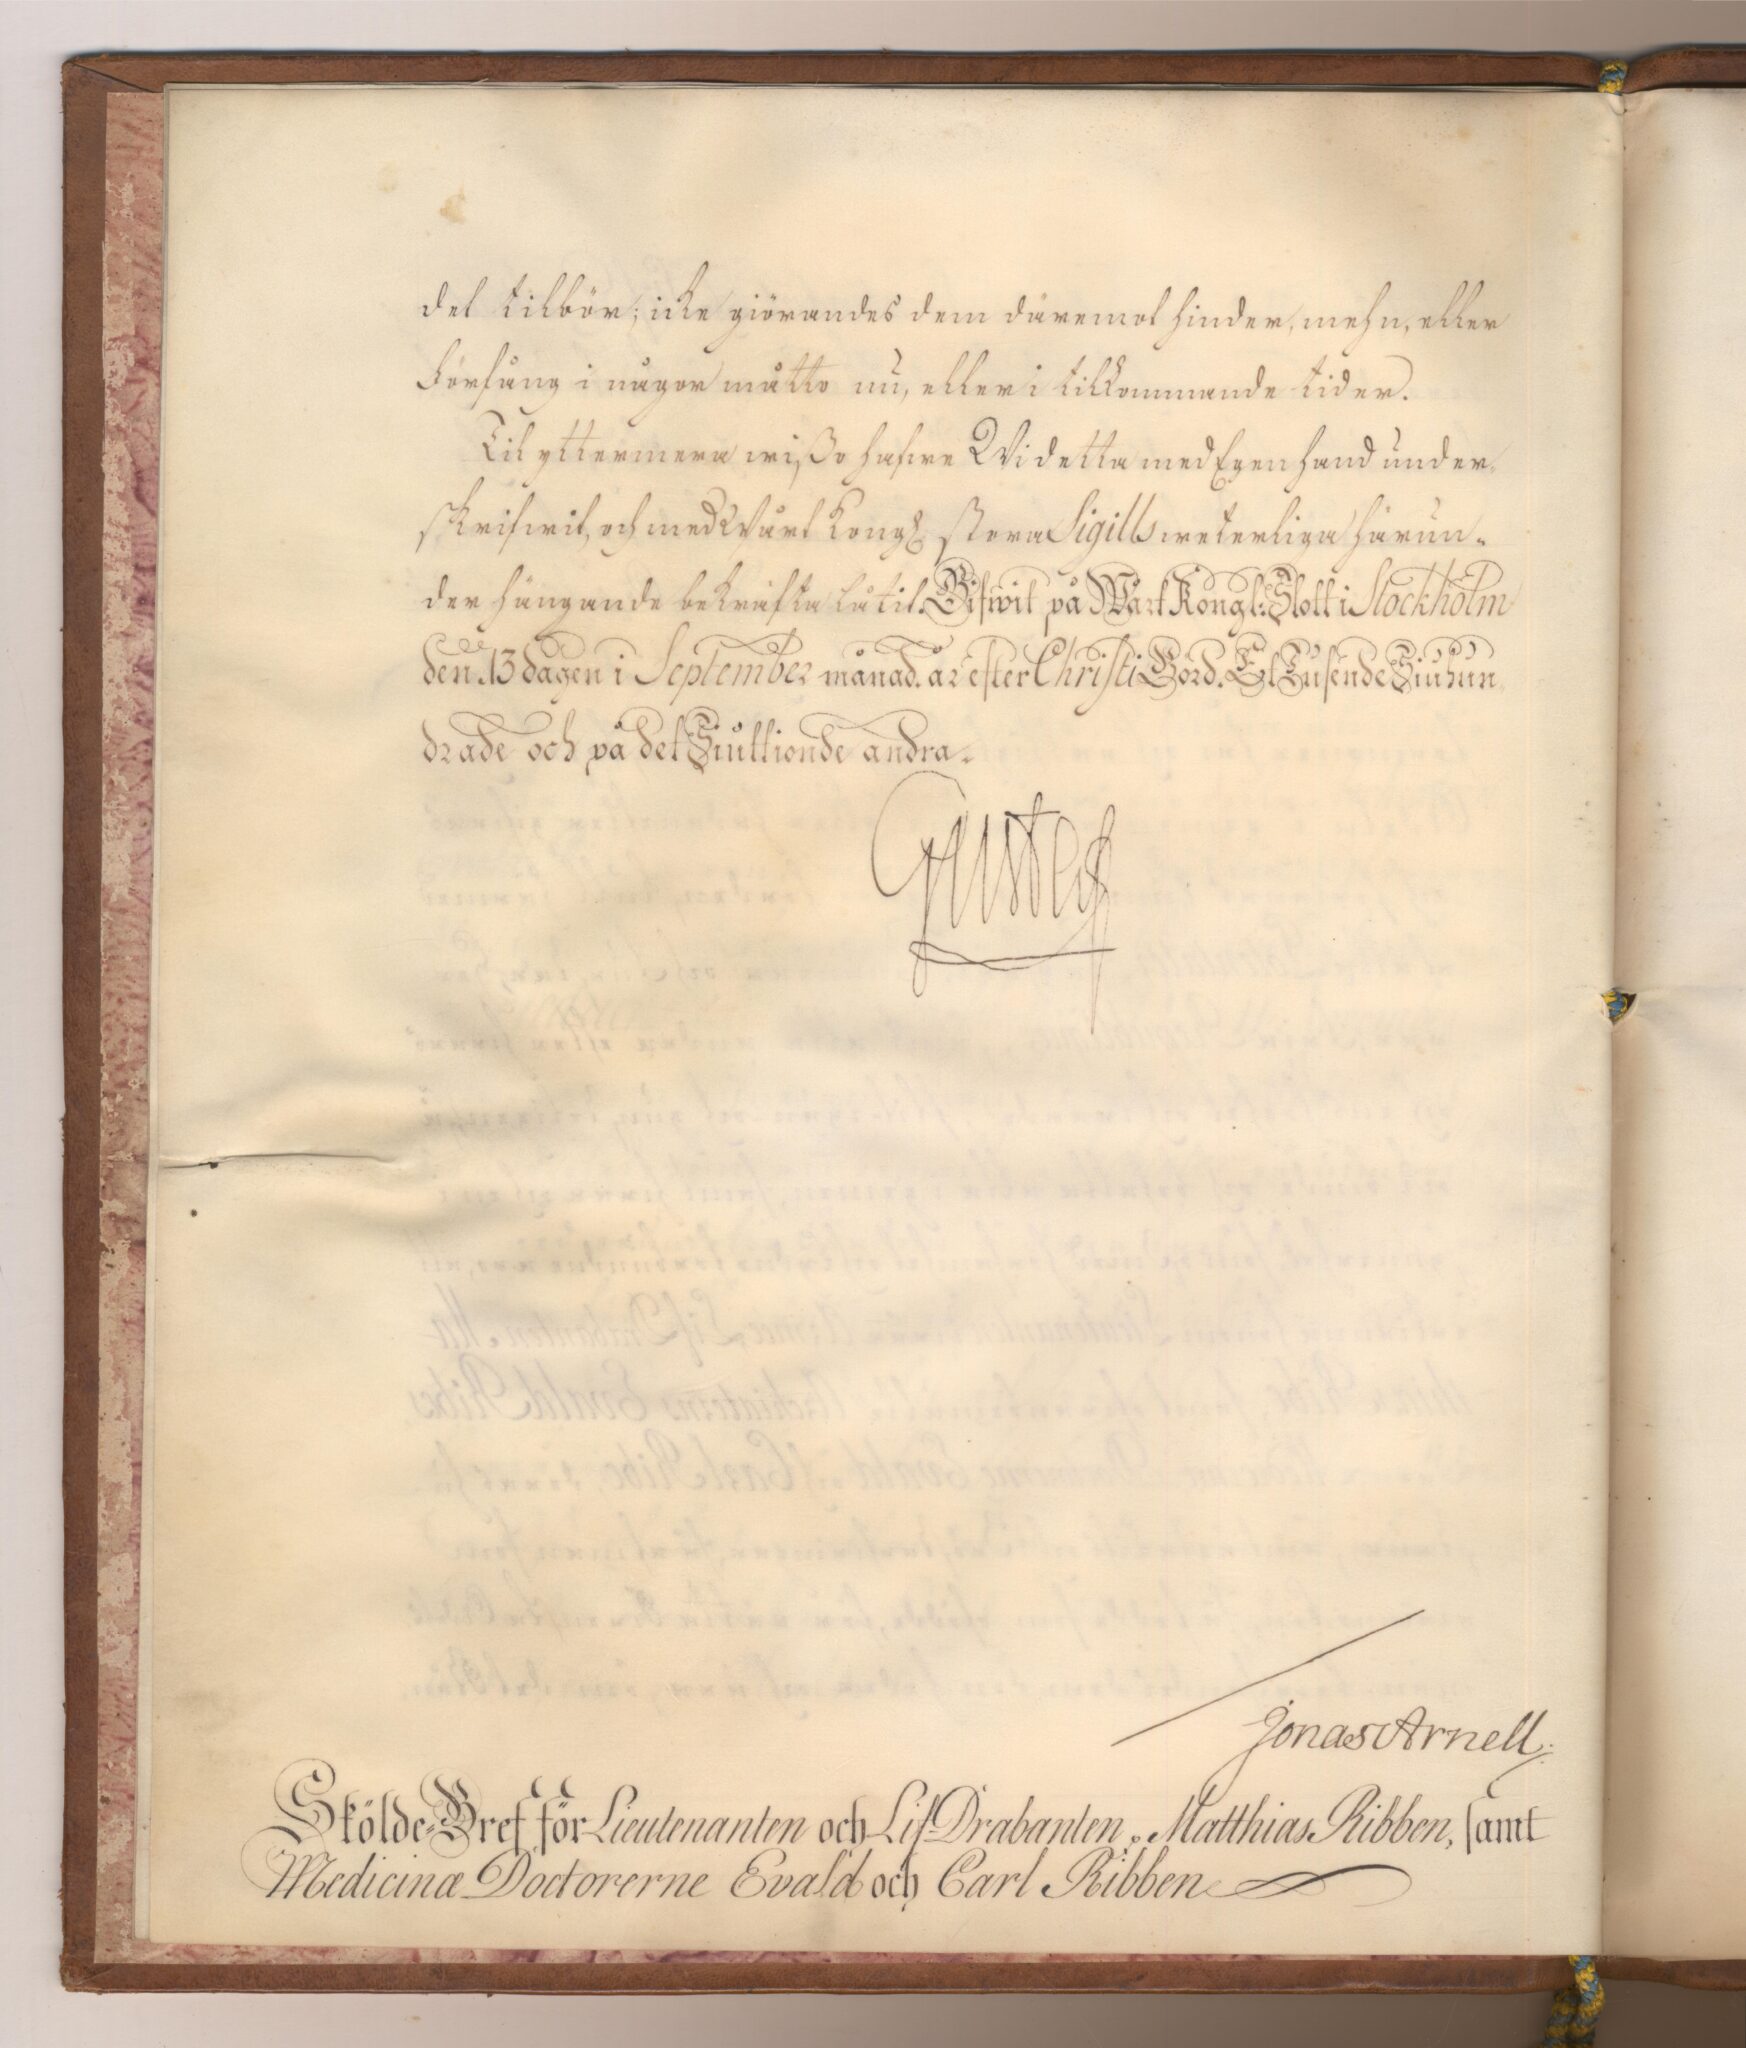 det tilbör; icke giörandes dem däremot hinder, mehn, eller
förfång i någor måtto nu, eller i tilkommande tider.
Til yttermera wißo hafwe Wi detta med Egen hand under-
skrifwit, och med Wårt Kongl. stora Sigills weterliga härun-
der hängande bekräfta låtit. Gifwit på Wårt Kongl: Slott i Stockholm
den 13 dagen i September månad. år efter Christi Börd. Et Tusende Siuhun-
drade och på det Siuttionde andra.
Gustaf
Jonas Arnell.
Skölde-Bref för Lieutenanten och Lif-Drabanten, Matthias Ribben, samt
Medicinæ Doctorerne Evald och Carl Ribben